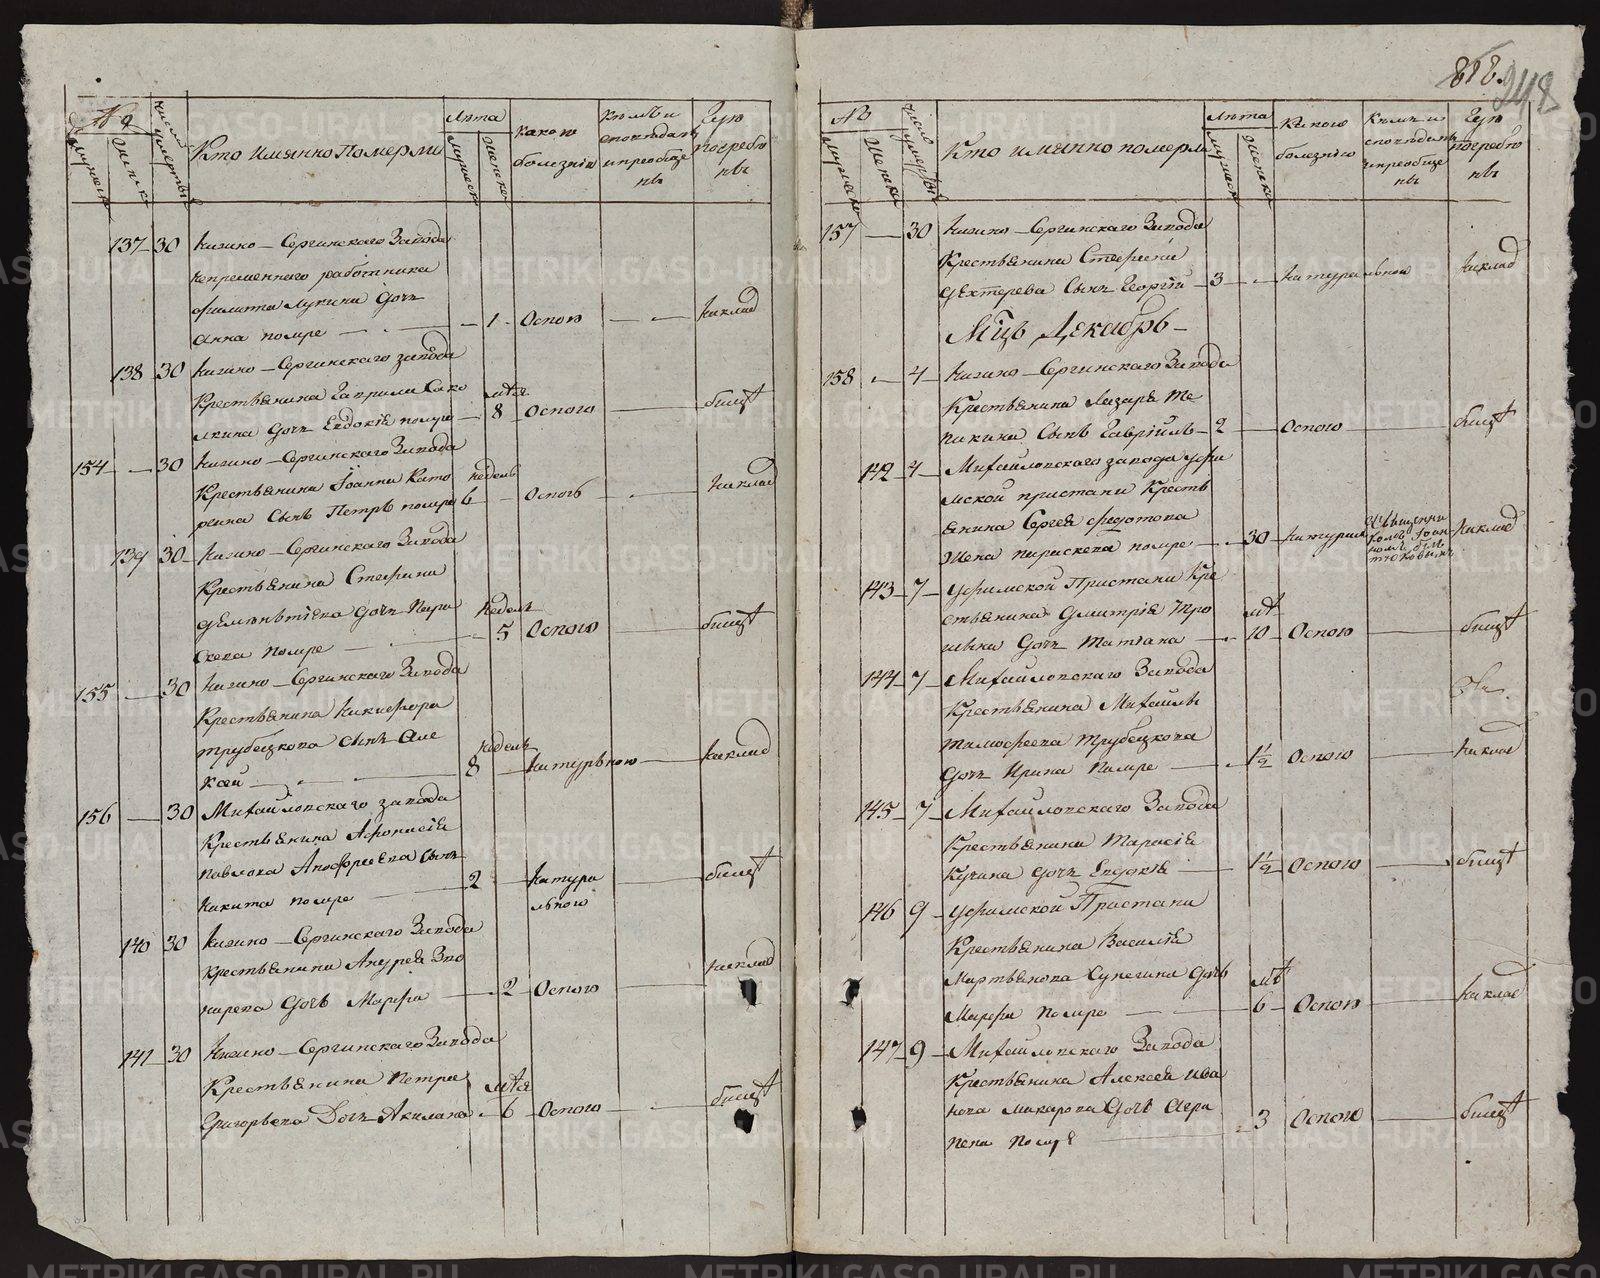 №
Число умертвы
Кто имянно Померли
Лѣта
Мужеск
Женско
Какою
болезнію
Кѣмъ и
споведаны
и преобще
ны
Где
погребе
ны
137 30 Нижно-Сергинскаго Завода
непременнаго работника
Филипа Лукина дочь
Анна помре 1 Оспою Наклад
138 30 Нижно-Сергинскаго завода
Крестьянина Гаврила Сако
лкина дочь Евдокія помре 8 Оспою билет
154 30 Нижно-Сергинскаго Завода
Крестьянина Іоанна Като
ргина Сынъ Петръ помре недель 6 Оспою Наклад
139 30 Нижно-Сергинскаго Завода
Крестьянина Стефана
Дементіева дочь Пара
скева помре недель 5 Оспою билет
155 30 Нижно-Сергинскаго Завода
Крестьянина Никифора
трубецкова сынъ Але
ксѣй недель 8 Натурьною Наклад
156 30 Михайловскаго завода
Крестьянина Афонасія
Павлова Сынъ
Никита помре 2 Натура
льною билет
140 30 Нижно-Сергинскаго Завода
Крестьянина Андрея
дочь Марфа 2 Оспою Наклад
141 30 Нижно-Сергинскаго Завода
Крестьянина Петра
Григорьева Дочь Акилина 6 Оспою билет
248
№
Мужеско
Женска
Число умертвы
Кто имянно померли
Лѣта
Мужеск
Женска
Какою
болезнію
Кѣмъ и
споведаны
и преобще
ны
Где
погребе
ны
157 30 Нижно-Сергинскаго Завода
Крестьянина Стефана
Дехтерева Сынъ Георгій 3 Натуральною Наклад
Мцъ Декабрь
158 4 Нижно-Сергинскаго Завода
Крестьянина Лазаря Те
пикина Сынъ Гавріилъ 2 Оспою билет
142 4 Михайловскаго завода уфи
мской пристани Кресть
янина Сергея Федотова
Жена Параскева помре 30 Натурал Священни
комъ Іоан
номъ
Наклад
143 7 Уфимской Пристани Кре
стьянина Дмитрія
дочь Татіана лѣт 10 Оспою билет
144 7 Михайловскаго Завода
Крестьянина Михайлы
Тимофеева Трубецкова
дочь Ирина Помре 1½ Оспою Наклад
145 7 Михайловскаго Завода
Крестьянина Тарасія
Кузина дочь Евдокія 1½ Оспою билет
146 9 Уфимской Пристани
Крестьянина Василія
Мартьянова Сунегина дочь
Марфа помре лѣт 6 Оспою Наклад
147 9 Михайловскаго Завода
Крестьянина Алексея Ива
нова Макарова дочь Агра
пена помре 3 Оспою билет
METRIKI.GASO-URAL.RU